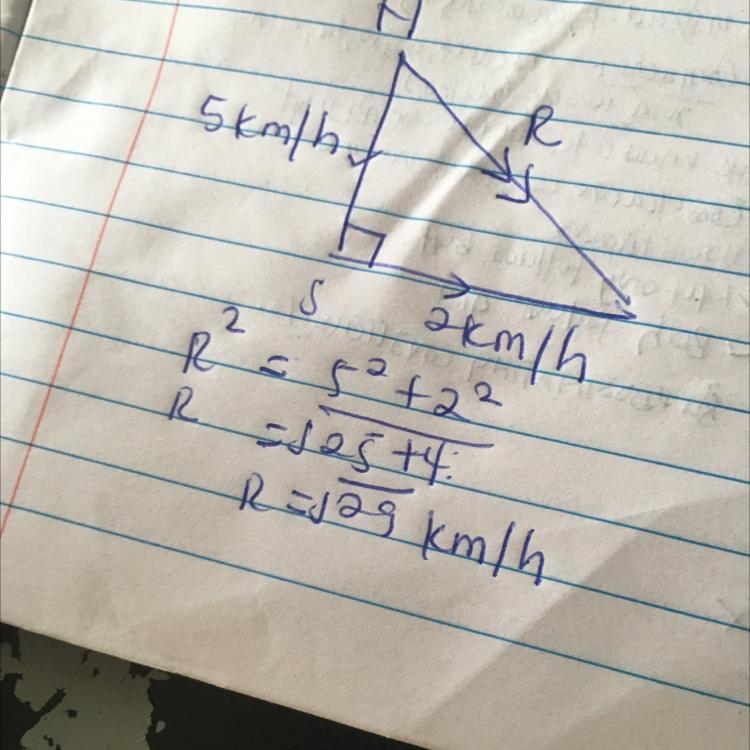 N
5km/h
R
S
2km/h
R² = 5² + 2²
R = √25 + 4
R = √29 km/h